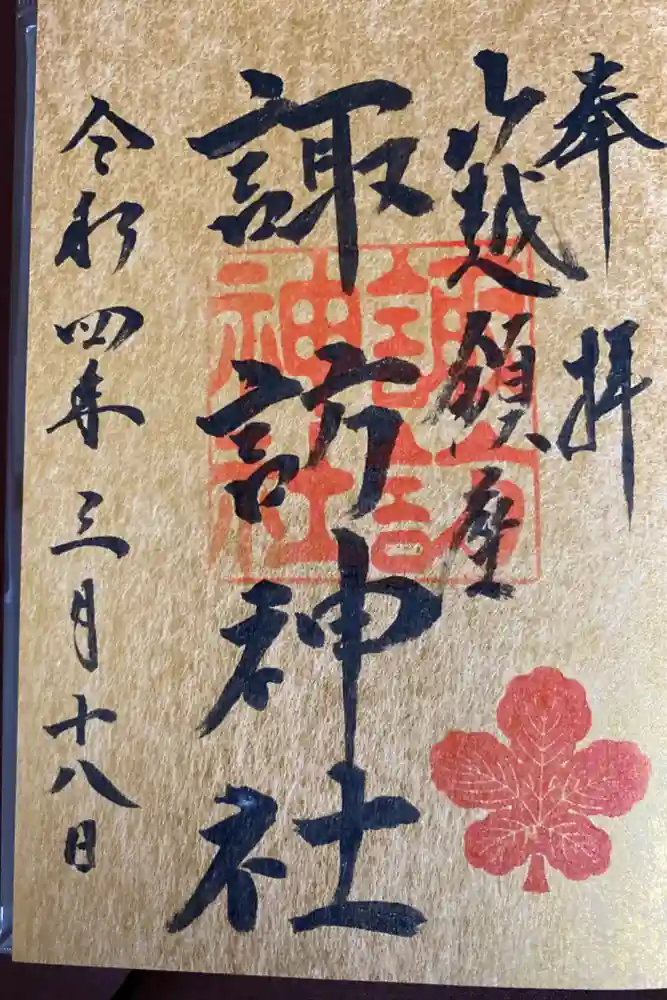 奉拝
越鎮座
諏訪神社
令和四年三月十八日
諏訪
神社